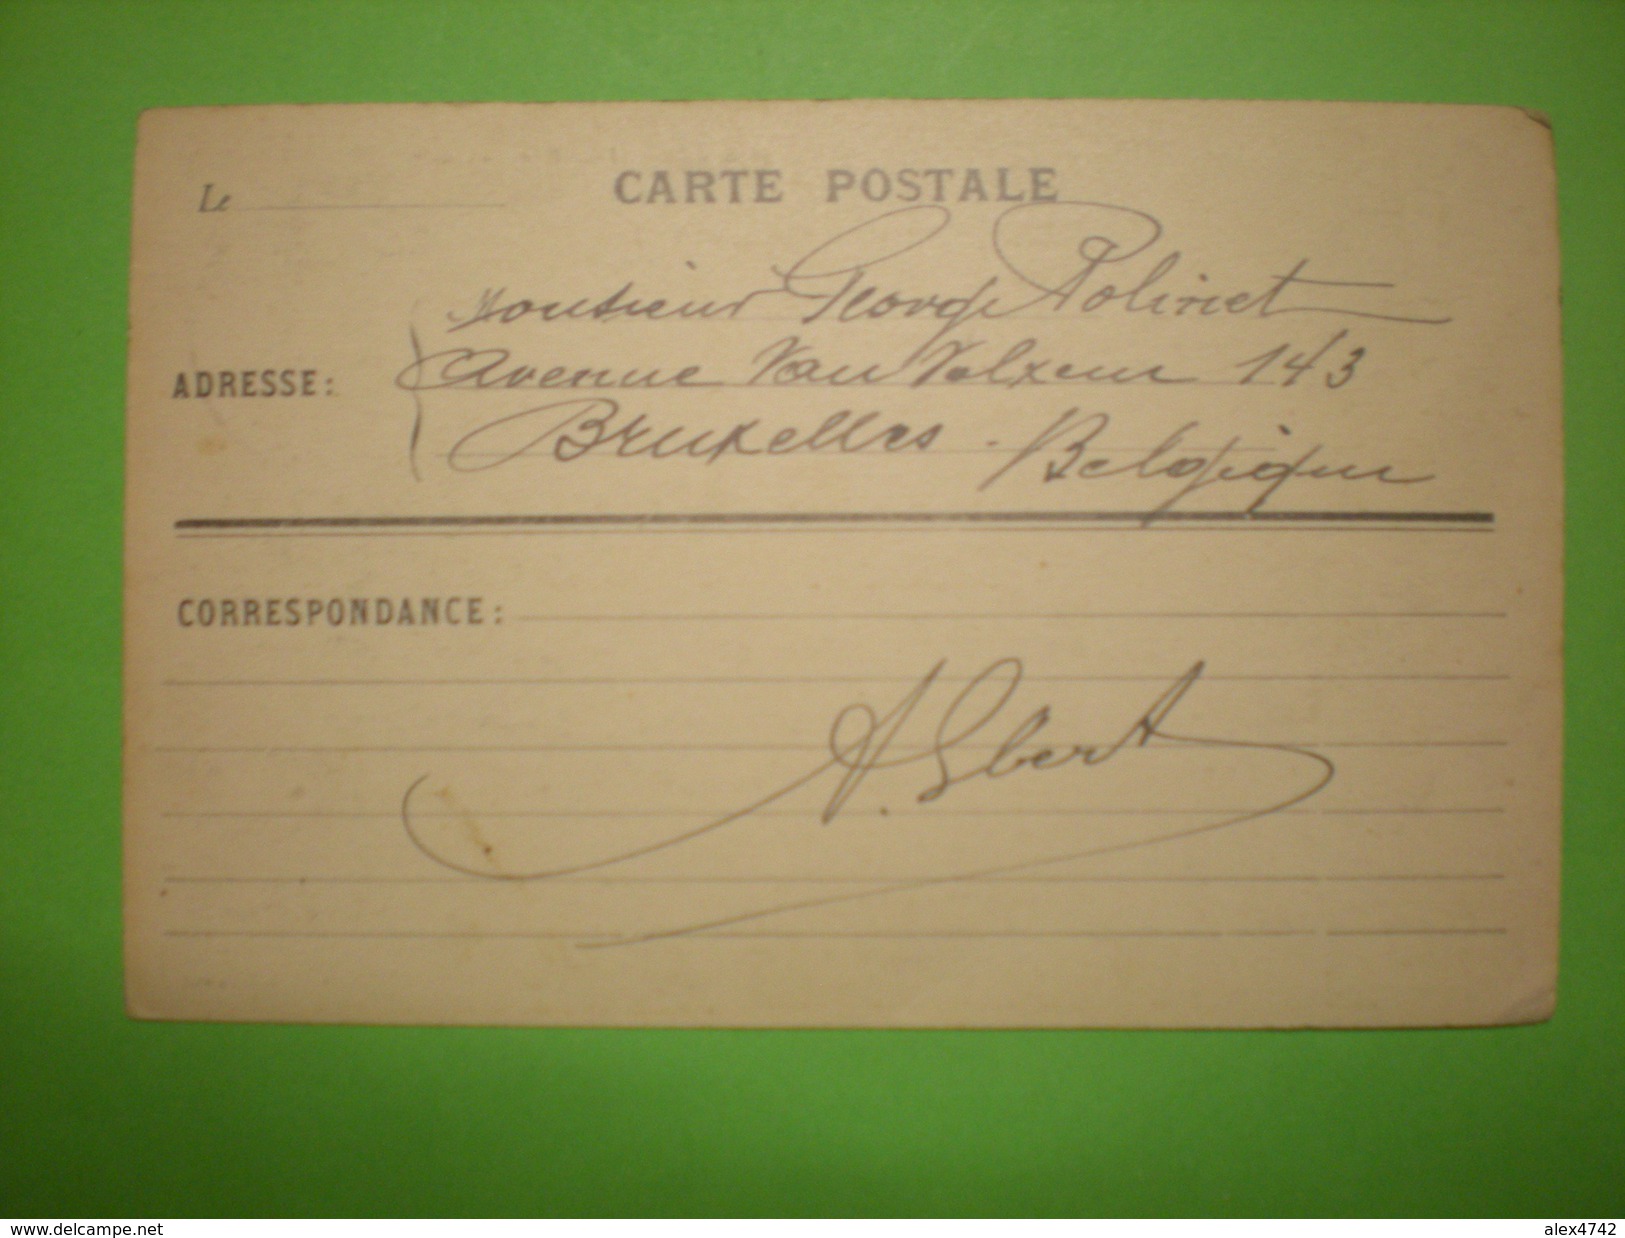 CARTE POSTALE
Le
Monsieur George Polinet
ADRESSE:
Avenue Van Volxem 143
Bruxelles - Belgique
CORRESPONDANCE:
A. Ebert
www.delcampe.net
alex4742